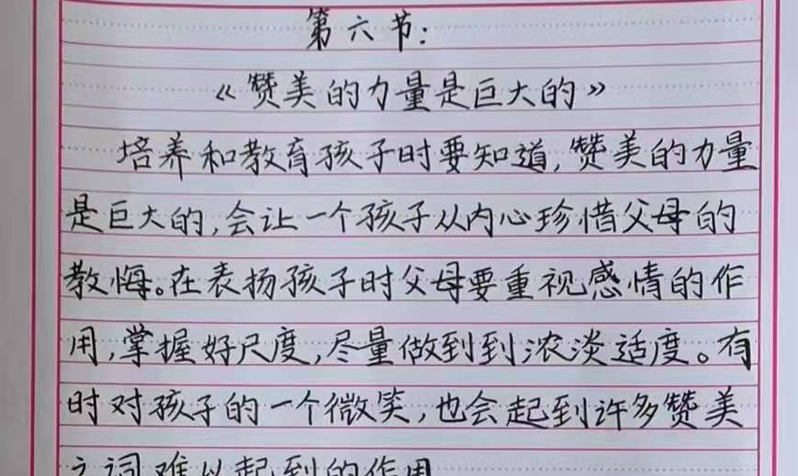 第六节:
《赞美的力量是巨大的》
培养和教育孩子时要知道,赞美的力量
是巨大的,会让一个孩子从内心珍惜父母的
教悔。在表扬孩子时父母要重视感情的作
用,掌握好尺度,尽量做到到浓淡适度。有
时对孩子的一个微笑,也会起到许多赞美
之词难以起到的作用